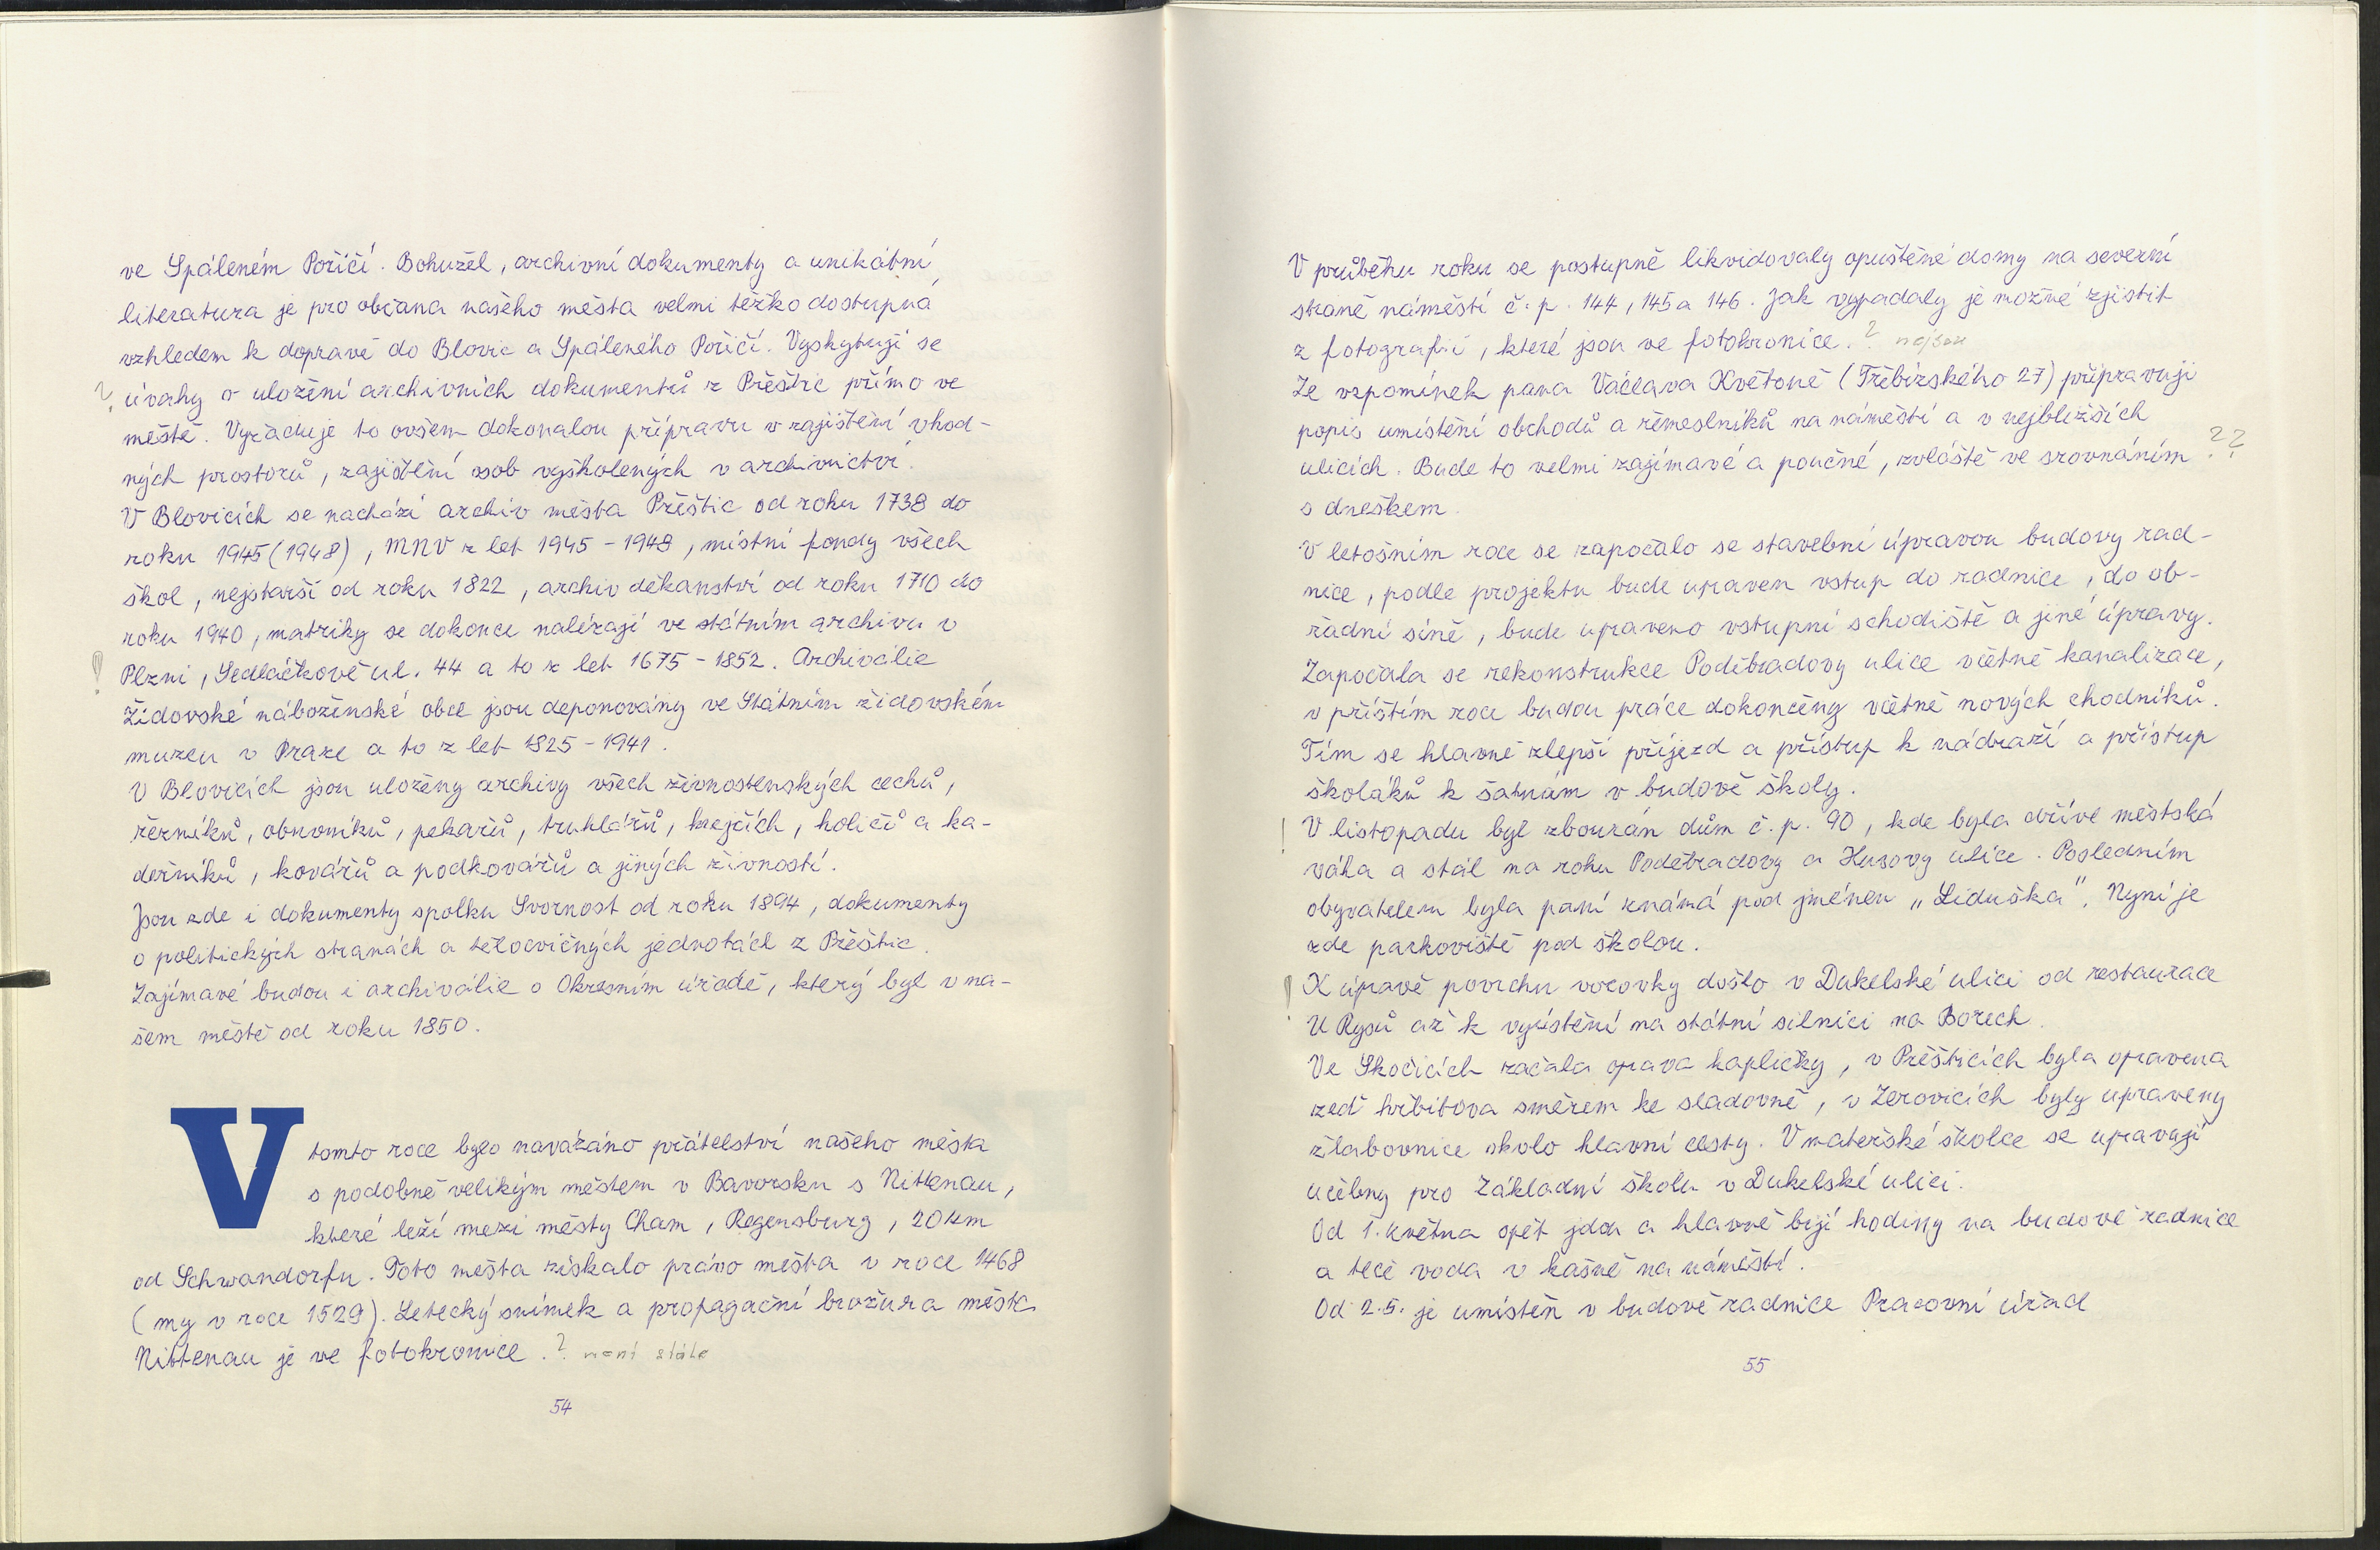 ve Spáleném Poříčí. Bohužel, archivní dokumenty a unikátní
literatura je pro občana našeho města velmi těžko dostupná
vzhledem k dopravě do Blovic a Spáleného Poříčí. Vyskytují se
? úvahy o uložení archivních dokumentů z Přeštic přímo ve
městě. Vyžaduje to ovšem dokonalou přípravu v zajištění vhod-
ných prostorů, zajištění osob vyškolených v archivnictví.
V Blovicích se nachází archiv města Přeštic od roku 1738 do
roku 1945 (1948), MNV z let 1945 - 1949, místní fondy všech
škol, nejstarší od roku 1822, archiv děkanství od roku 1710 do
roku 1940, matriky se dokonce nalézají ve státním archivu v
! Plzni, Sedláčkově ul. 44 a to z let 1675 - 1852. Archiválie
Židovské náboženské obce jsou deponovány ve Státním židovském
muzeu v Praze a to z let 1825 - 1941.
V Blovicích jsou uloženy archivy všech živnostenských cechů,
řezníků, obuvníků, pekařů, truhlářů, krejčích, holičů a ka-
deřníků, kovářů a podkovářů a jiných živností.
Jsou zde i dokumenty spolku Svornost od roku 1894, dokumenty
o politických stranách a tělocvičných jednotách z Přeštic.
Zajímavé budou i archiválie o Okresním úřadě, který byl v na-
šem městě od roku 1850.
V tomto roce bylo navázáno přátelství našeho města
s podobně velikým městem v Bavorsku s Nittenau,
které leží mezi městy Cham, Regensburg, 20 km
od Schwandorfu. Toto město získalo právo města v roce 1468
(my v roce 1529). Letecký snímek a propagační brožura města
Nittenau je ve fotokronice. ? není stále
54
V průběhu roku se postupně likvidovaly opuštěné domy na severní
straně náměstí č. p. 144, 145 a 146. Jak vypadaly je možné zjistit
z fotografií, které jsou ve fotokronice. ? nejsou
Ze vzpomínek pana Václava Květoně (Třebízského 27) připravuji
popis umístění obchodů a řemeslníků na náměstí a v nejbližších
ulicích. Bude to velmi zajímavé a poučné, zvláště ve srovnáním ??
s dneškem.
V letošním roce se započalo se stavební úpravou budovy rad-
nice, podle projektu bude upraven vstup do radnice, do ob-
řadní síně, bude upraveno vstupní schodiště a jiné úpravy.
Započala se rekonstrukce Poděbradovy ulice včetně kanalizace,
v příštím roce budou práce dokončeny včetně nových chodníků.
Tím se hlavně zlepší příjezd a přístup k nádraží a přístup
školáků k šatnám v budově školy.
! V listopadu byl zbourán dům č. p. 90, kde byla dříve městská
váha a stál na rohu Poděbradovy a Husovy ulice. Posledním
obyvatelem byla paní známá pod jménem „Liduška". Nyní je
zde parkoviště pod školou.
! K úpravě povrchu vozovky došlo v Dukelské ulici od restaurace
U Rysů až k vyústění na státní silnici na Borech.
Ve Skočicích začala oprava kapličky, v Přešticích byla opravena
zeď hřbitova směrem ke sladovně, v Žerovicích byly upraveny
žlabovnice okolo hlavní cesty. V mateřské školce se upravují
učebny pro Základní školu v Dukelské ulici.
Od 1. května opět jdou a hlavně bijí hodiny na budově radnice
a teče voda v kašně na náměstí.
Od 2.5. je umístěn v budově radnice Pracovní úřad
55